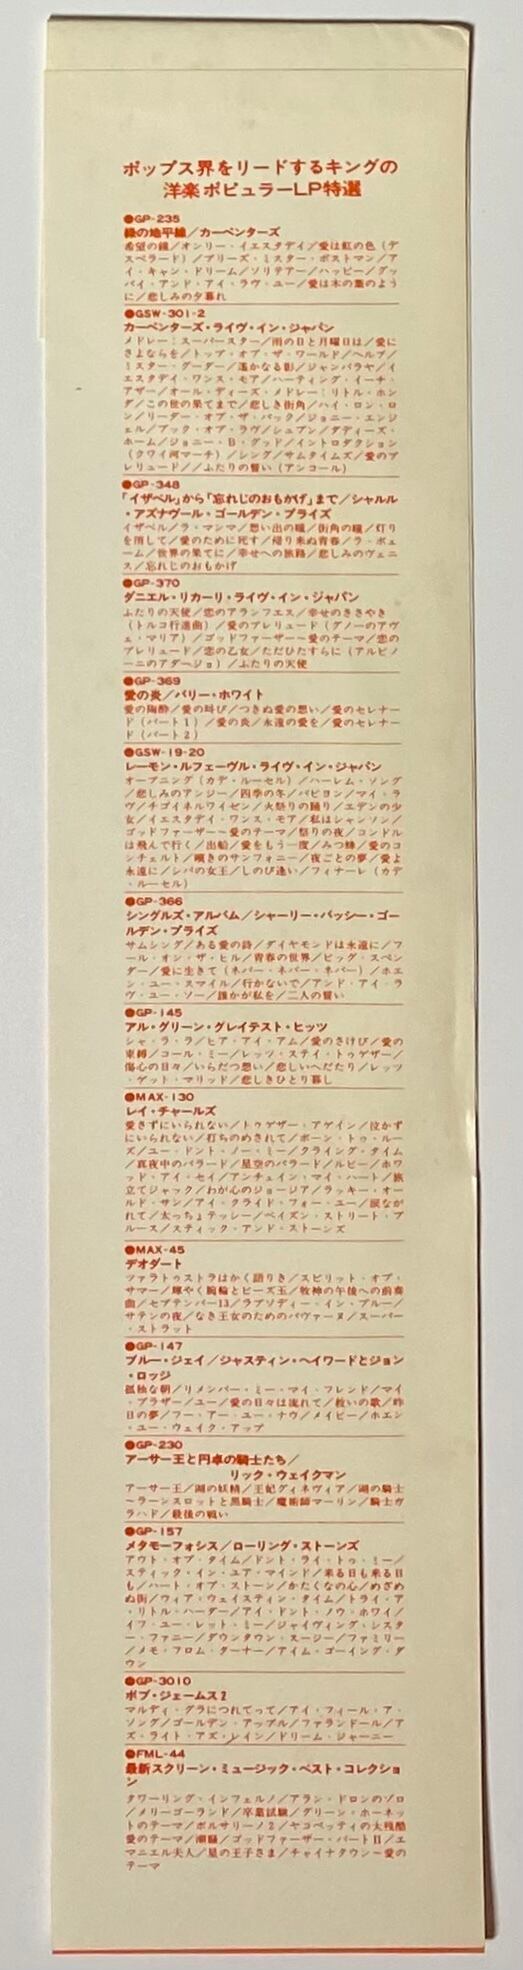 ポップス界をリードするキングの
洋楽ポピュラーLP特選
●GP-235
緑の地平線／カーペンターズ
希望の鐘／オンリー・イエスタデイ／愛は虹の色（デ
スペラード）／プリーズ・ミスター・ポストマン／ア
イ・キャン・ドリーム／ソリテアー／ハッピー／グッ
バイ・アンド・アイ・ラヴ・ユー／愛は木の葉のよう
に／悲しみの夕暮れ
●GSW-301-2
カーペンターズ・ライヴ・イン・ジャパン
メドレー：スーパースター／雨の日と月曜日は／愛に
さよならを／トップ・オブ・ザ・ワールド／ヘルプ／
ミスター・グーダー／遙かなる影／ジャンバラヤ／イ
エスタデイ・ワンス・モア／ハーティング・イーチ・
アザー／オール・ディーズ・メドレー：リトル・ホン
ダ／この世の果てまで／悲しき街角／ハイ・ロン・ロ
ン／リーダー・オブ・ザ・パック／ジョニー・エンジ
ェル／ブック・オブ・ラヴ／シュプン／ダディーズ・
ホーム／ジョニー・B・グッド／イントロダクション
（クワイ河マーチ）／シング／サムタイムズ／愛のプ
レリュード／／ふたりの誓い（アンコール）
●GP-348
「イザベル」から「忘れじのおもかげ」まで／シャルル
・アズナヴール・ゴールデン・プライズ
イザベル／ラ・マンマ／想い出の瞳／街角の瞳／灯り
を消して／愛のために死す／帰り来ぬ青春／ラ・ボェ
ーム／世界の果てに／幸せへの旅路／悲しみのヴェニ
ス／忘れじのおもかげ
●GP-370
ダニエル・リカーリ・ライヴ・イン・ジャパン
ふたりの天使／恋のアランフエス／幸せのささやき
（トルコ行進曲）／愛のプレリュード（グノーのアヴ
ェ・マリア）／ゴッドファーザー〜愛のテーマ／恋の
プレリュード／恋の乙女／ただひたすらに（アルビノ
ーニのアダージョ）／ふたりの天使
●GP-369
愛の炎／バリー・ホワイト
愛の陶酔／愛の叫び／つきぬ愛の想い／愛のセレナー
ド（パート1）／愛の炎／永遠の愛を／愛のセレナー
ド（パート2）
●GSW-19-20
レーモン・ルフェーヴル・ライヴ・イン・ジャパン
オープニング（カデ・ルーセル）／ハーレム・ソング
／悲しみのアンジー／四季の冬／パピヨン／マイ・ラ
ヴ／チゴイネルワイゼン／火祭りの踊り／エデンの少
女／イエスタデイ・ワンス・モア／私はシャンソン／
ゴッドファーザー〜愛のテーマ／祭りの夜／コンドル
は飛んで行く／出船／愛をもう一度／みつ蜂／愛のコ
ンチェルト／嘆きのサンフォニー／夜ごとの夢／愛よ
永遠に／シバの女王／しのび逢い／フィナーレ（カデ
・ルーセル）
●GP-366
シングルズ・アルバム／シャーリー・バッシー・ゴー
ルデン・プライズ
サムシング／ある愛の詩／ダイヤモンドは永遠に／フ
ール・オン・ザ・ヒル／青春の世界／ビッグ・スペン
ダー／愛に生きて（ネバー・ネバー・ネバー）／ホエ
ン・ユー・スマイル／行かないで／アンド・アイ・ラ
ヴ・ユー・ソー／誰かが私を／二人の誓い
●GP-145
アル・グリーン・グレイテスト・ヒッツ
シャ・ラ・ラ／ヒア・アイ・アム／愛のさけび／愛の
束縛／コール・ミー／レッツ・ステイ・トゥゲザー／
傷心の日々／いらだつ想い／悲しいへだたり／レッツ
・ゲット・マリッド／悲しきひとり暮し
●MAX-130
レイ・チャールズ
愛さずにいられない／トゥゲザー・アゲイン／泣かず
にいられない／打ちのめされて／ボーン・トゥ・ルー
ズ／ユー・ドント・ノー・ミー／クライング・タイム
／真夜中のバラード／星空のバラード／ルビー／ホワ
ッド・アイ・セイ／アンチェイン・マイ・ハート／旅
立てジャック／わが心のジョージア／ラッキー・オー
ルド・サン／アイ・クライド・フォー・ユー／涙なが
れて／太っちょテッシー／ベイズン・ストリート・ブ
ルース／スティック・アンド・ストーンズ
●MAX-45
デオダート
ツァラトゥストラはかく語りき／スピリット・オブ・
サマー／輝やく腕輪とビーズ玉／牧神の午後への前奏
曲／セプテンバー13／ラプソディー・イン・ブルー／
サテンの夜／なき王女のためのパヴァーヌ／スーパー
・ストラット
●GP-147
ブルー・ジェイ／ジャスティン・ヘイワードとジョン
・ロッジ
孤独な朝／リメンバー・ミー・マイ・フレンド／マイ
・ブラザー／ユー／愛の日々は流れて／救いの歌／昨
日の夢／フー・アー・ユー・ナウ／メイビー／ホエン
・ユー・ウェイク・アップ
●GP-230
アーサー王と円卓の騎士たち／
リック・ウェイクマン
アーサー王／湖の妖精／王妃グィネヴィア／湖の騎士
〜ラーンスロットと黒騎士／魔術師マーリン／騎士ガ
ラハド／最後の戦い
●GP-157
メタモーフォシス／ローリング・ストーンズ
アウト・オブ・タイム／ドント・ライ・トゥ・ミー／
スティック・イン・ユア・マインド／来る日も来る日
も／ハート・オブ・ストーン／かたくなの心／めざめ
ぬ街／ウィア・ウェイスティン・タイム／トライ・ア
・リトル・ハーダー／アイ・ドント・ノウ・ホワイ／
イフ・ユー・レット・ミー／ジャイヴィング・シスタ
ー・ファニー／ダウンタウン・スージー／ファミリー
／メモ・フロム・ターナー／アイム・ゴーイング・ダ
ウン
●GP-3010
ボブ・ジェームス2
マルディ・グラにつれてって／アイ・フィール・ア・
ソング／ゴールデン・アップル／ファランドール／ア
ズ・ライト・アズ・レイン／ドリーム・ジャーニー
●FML-44
最新スクリーン・ミュージック・ベスト・コレクショ
ン
タワーリング・インフェルノ／アラン・ドロンのゾロ
／メリーゴーランド／卒業試験／グリーン・ホーネッ
トのテーマ／ボルサリーノ2／ヤコペッティの大残酷
愛のテーマ／潮騒／ゴッドファーザー・パートII／エ
マニエル夫人／星の王子さま／チャイナタウン〜愛の
テーマ